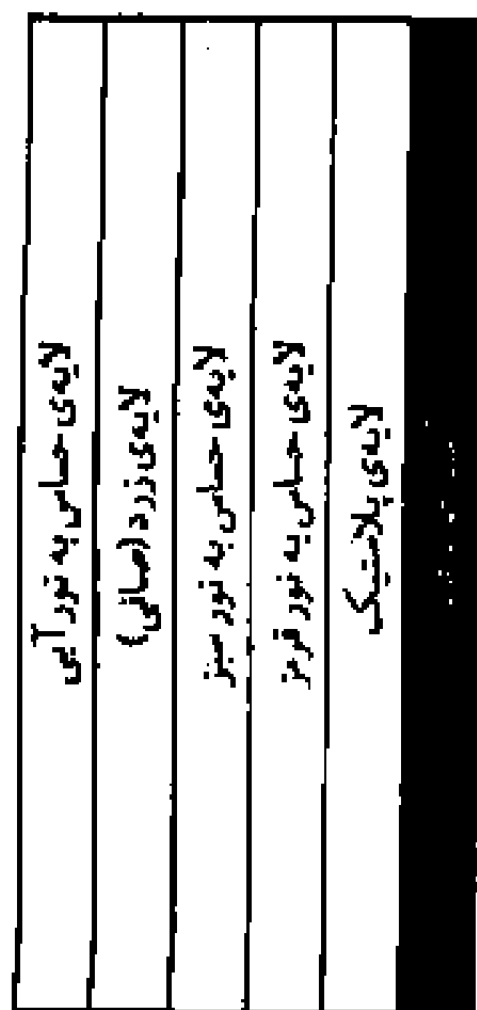 لایه‌ی حساس به نور آبی
لایه‌ی زرد (صافی)
لایه‌ی حساس به نور سبز
لایه‌ی حساس به نور قرمز
لایه‌ی پلاستیک